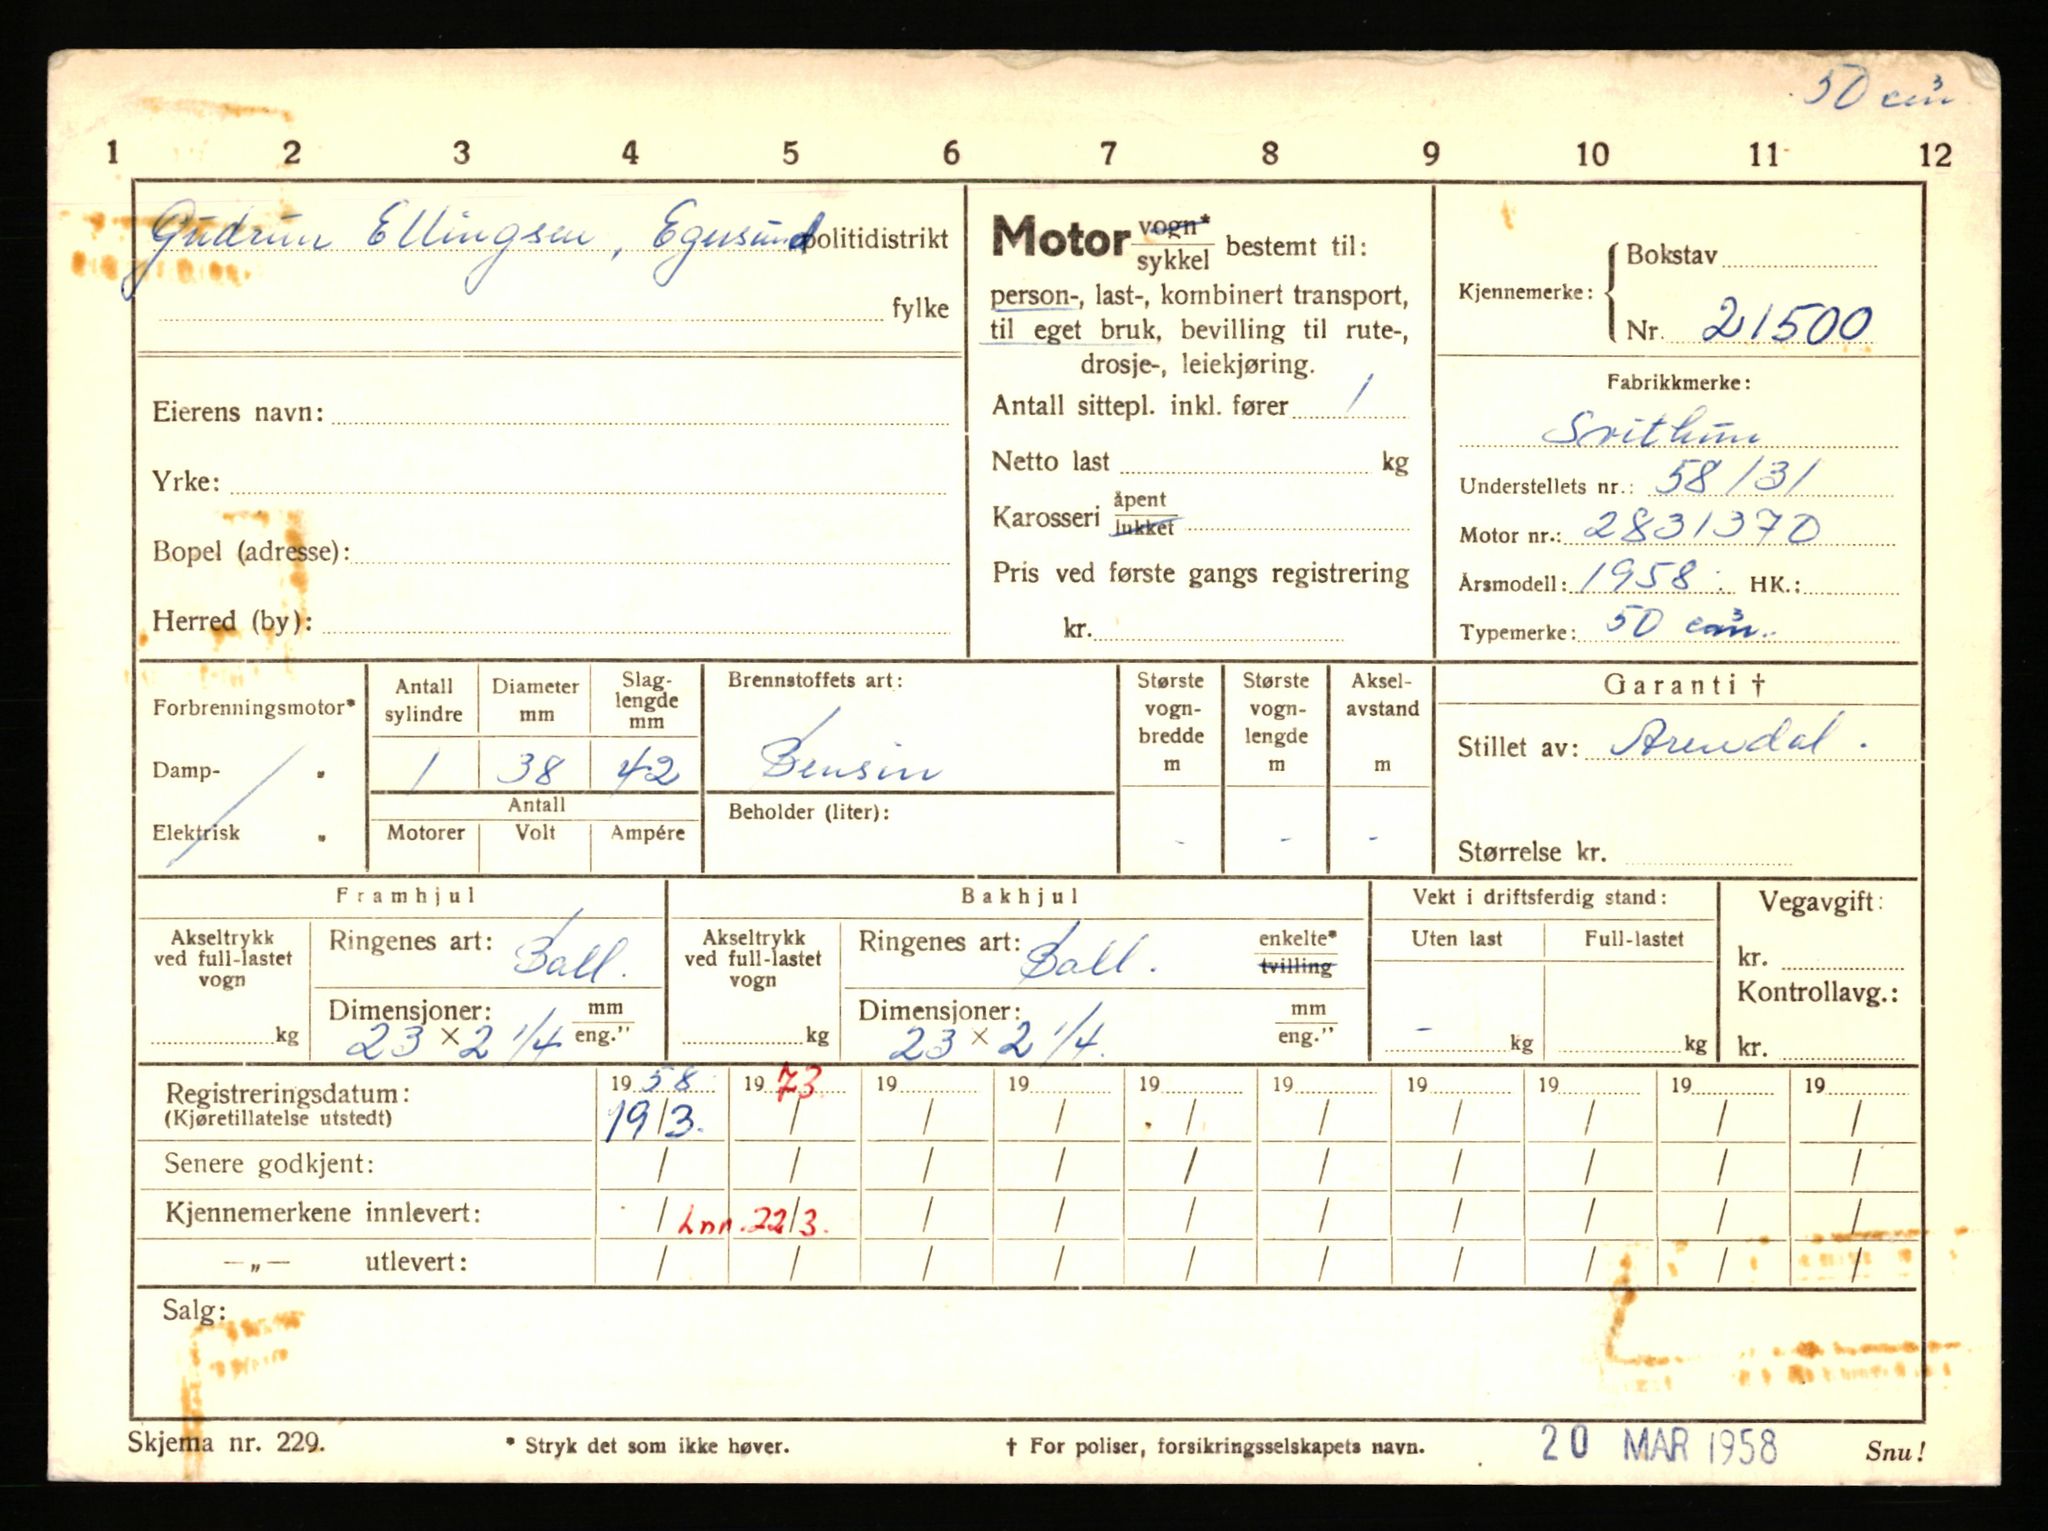 50 cm³
1 2 3 4 5 6 7 8 9 10 11 12
Gudrun Ellingsen, Egersund politidistrikt
fylke
Eierens navn:
Yrke:
Bopel (adresse):
Herred (by):
Motor vogn* sykkel bestemt til:
person-, last-, kombinert transport,
til eget bruk, bevilling til rute-,
drosje-, leiekjøring.
Antall sittepl. inkl. fører 1
Netto last kg
Karosseri åpent lukket
Pris ved første gangs registrering
kr.
Kjennemerke: Bokstav
Nr. 21500
Fabrikkmerke:
Svithun
Understellets nr.: 58131
Motor nr.: 2831370
Årsmodell: 1958. HK.:
Typemerke: 50 cm³.
Forbrenningsmotor*
Damp- "
Elektrisk "
Antall sylindre
1
Diameter mm
38
Slag-lengde mm
42
Antall
Motorer Volt Ampére
Brennstoffets art:
Bensin
Beholder (liter):
Største vogn-bredde m
-
Største vogn-lengde m
-
Aksel-avstand m
-
Garanti †
Stillet av: Arendal.
Størrelse kr.
Framhjul
Akseltrykk ved full-lastet vogn
kg
Ringenes art: Ball.
Dimensjoner: mm
23 × 2 1/4 eng."
Bakhjul
Akseltrykk ved full-lastet vogn
kg
Ringenes art: Ball. enkelte* tvilling
Dimensjoner: mm
23 × 2 1/4. eng."
Vekt i driftsferdig stand:
Uten last Full-lastet
- kg kg
Vegavgift:
kr.
Kontrollavg.:
kr.
Registreringsdatum: 19 58 19 73 19 19 19 19 19 19 19 19
(Kjøretillatelse utstedt) 19/3. / / / / / / / / /
Senere godkjent: / / / / / / / / / /
Kjennemerkene innlevert: / Inn. 22/3. / / / / / / / /
—„— utlevert: / / / / / / / / / /
Salg:
Skjema nr. 229. * Stryk det som ikke høver. † For poliser, forsikringsselskapets navn. 20 MAR 1958 Snu!